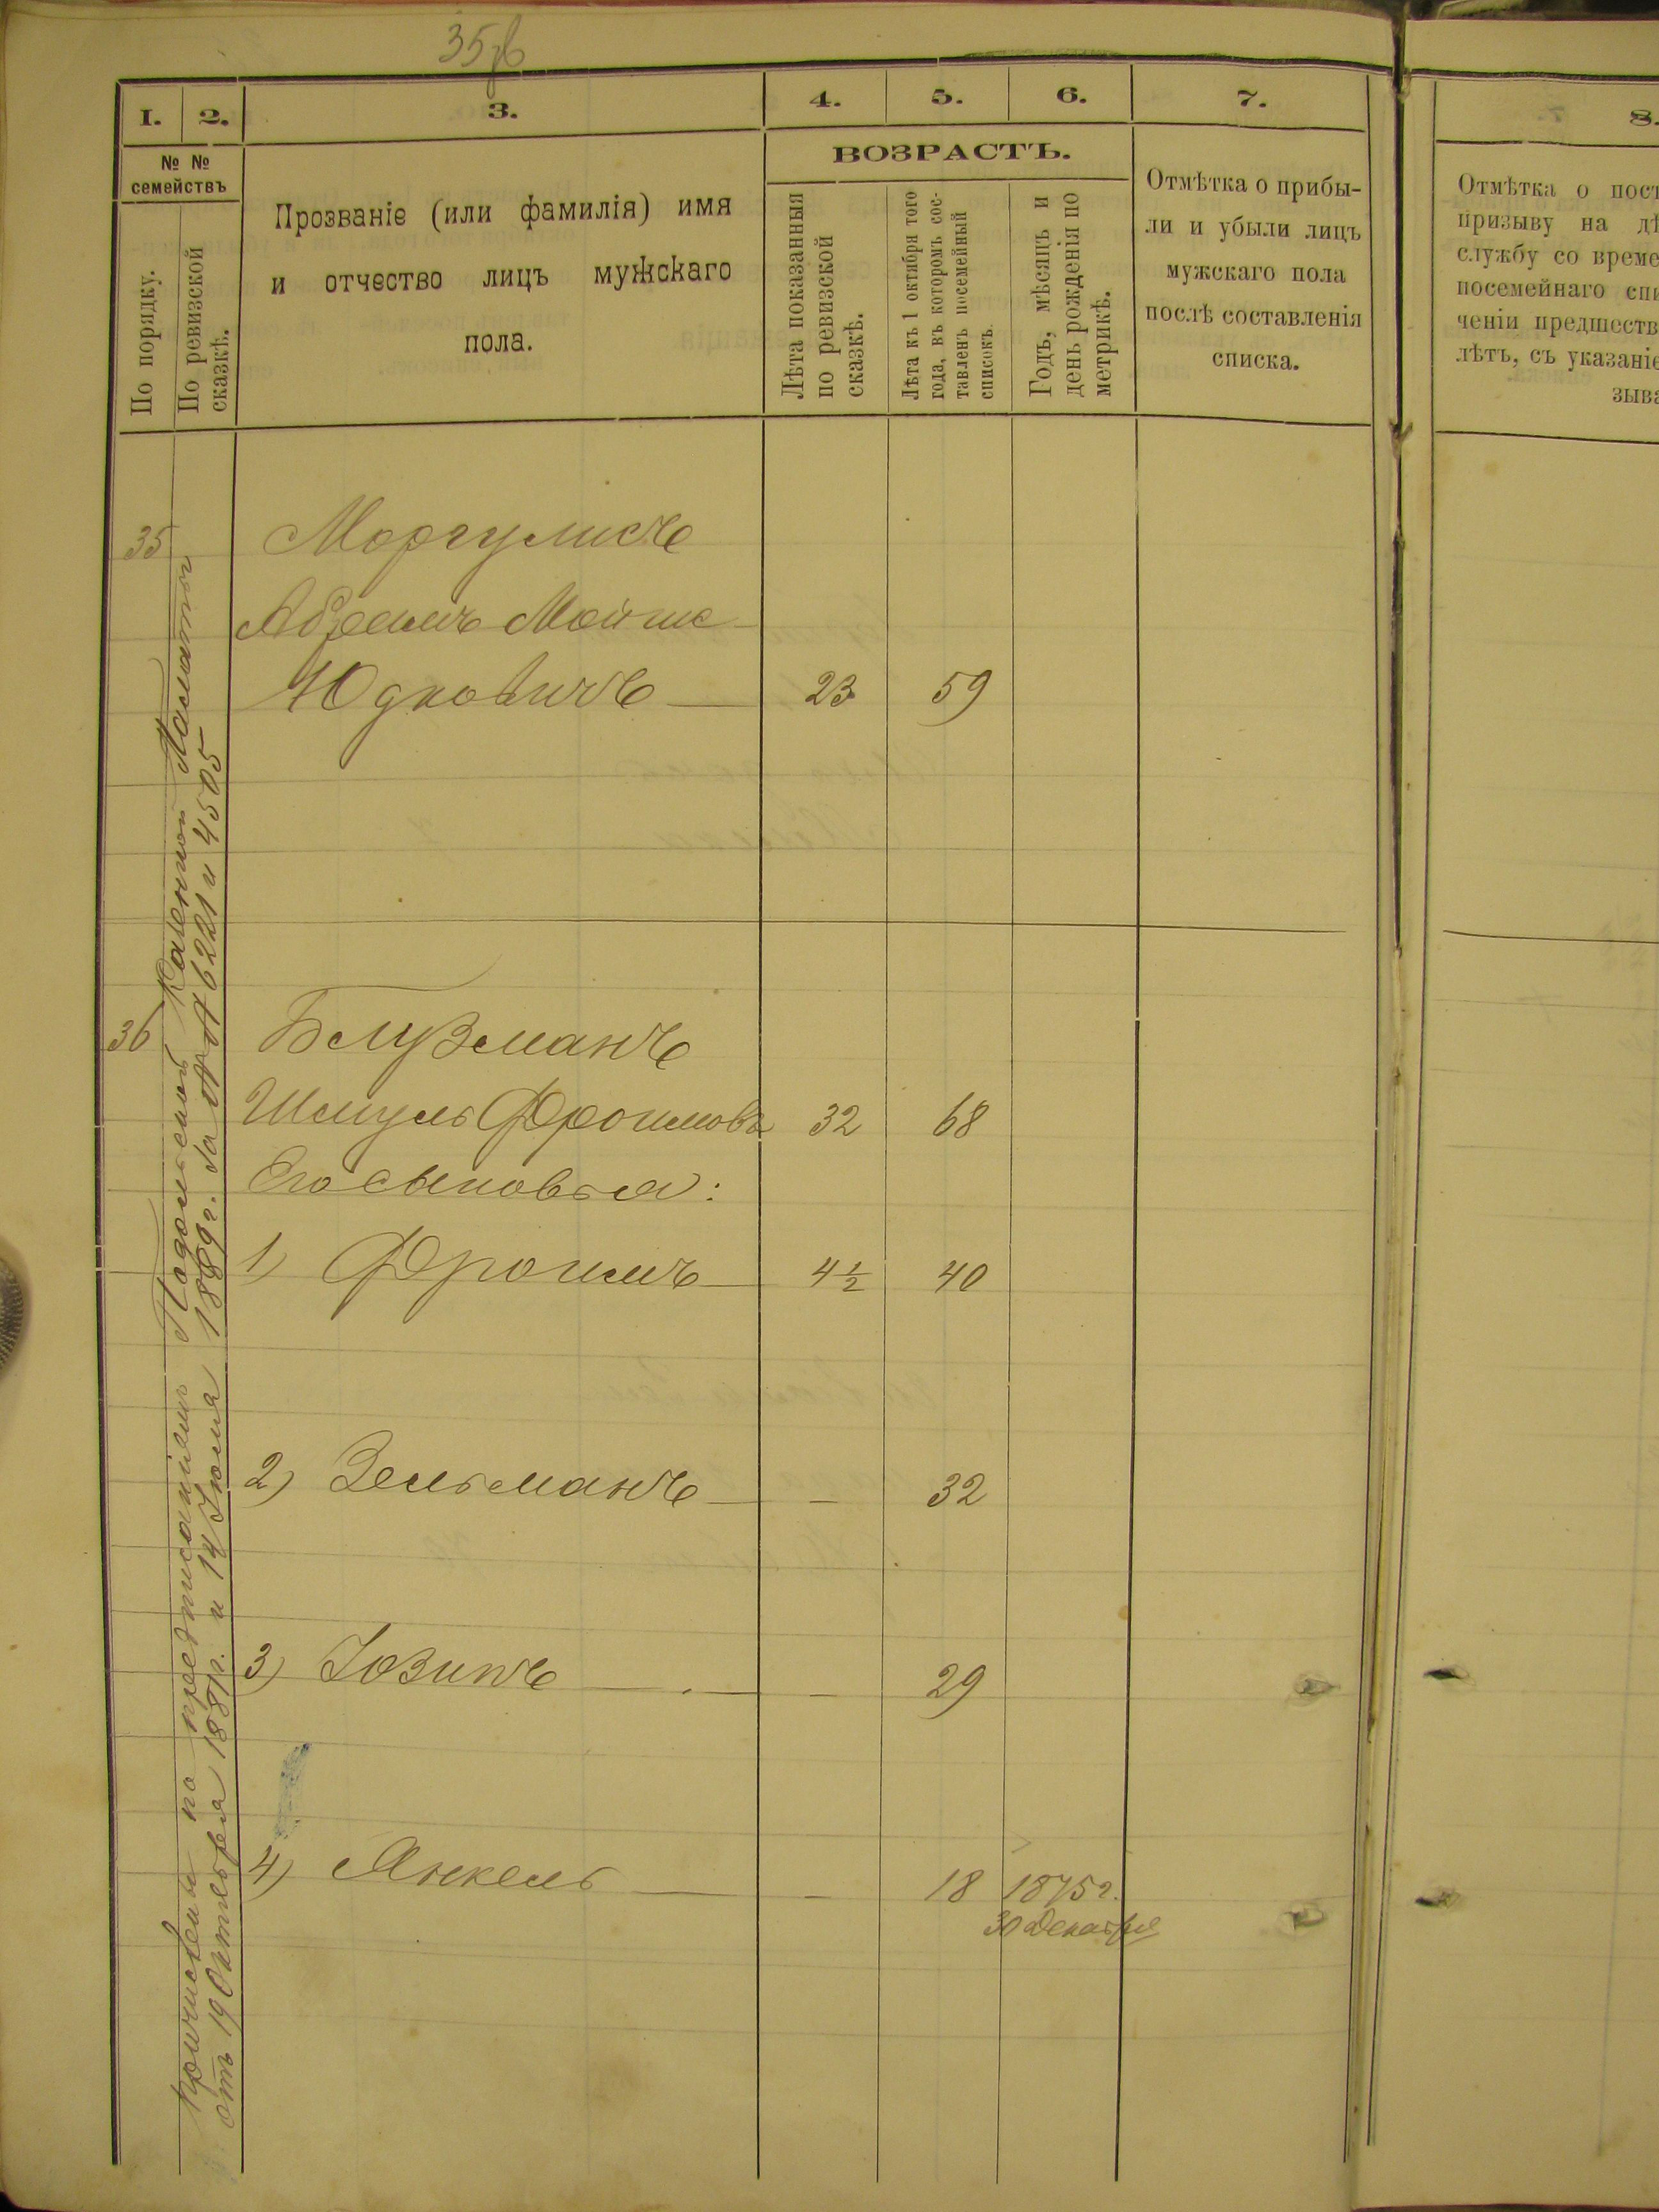 35 зв
I. 2. 3. 4. 5. 6. 7.
8.
№ №
семействъ
По порядку.
По ревизской
сказкѣ.
Прозваніе (или фамилія) имя
и отчество лицъ мужскаго
пола.
ВОЗРАСТЪ.
Лѣта показанныя
по ревизской
сказкѣ.
Лѣта къ 1 октября того
года, въ которомъ сос-
тавленъ посемейный
списокъ.
Годъ, мѣсяцъ и
день рожденія по
метрикѣ.
Отмѣтка о прибы-
ли и убыли лицъ
мужскаго пола
послѣ составленія
списка.
Отмѣтка о пост
призыву на дѣ
службу со време
посемейнаго спи
ченіи предшеств
лѣтъ, съ указаніе
зыва
35 Моргулисъ
Абрамъ Мойше
Юдковичъ 23 59
36 Блузманъ
Шмуль Фроимовъ 32 68
Его сыновья:
1) Фроимъ 4½ 40
2) Зельманъ — 32
3) Іозипъ — 29
4) Янкель — 18 1875 г.
30 Декабря
причислены по предписаніямъ Подольской Казенной Палаты
отъ 19 Октября 1881 г. и 14 Іюля 1889 г. за №№ 6221 и 4505